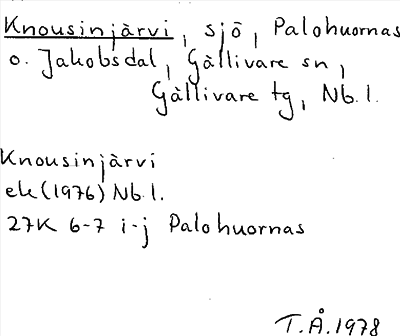 Knousinjärvi, sjö, Palohuornas
o. Jakobsdal, Gällivare sn,
Gällivare tg, Nb.l.
Knousinjärvi
ek (1976) Nb.l.
27K 6-7 i-j Palohuornas
T.Å. 1978